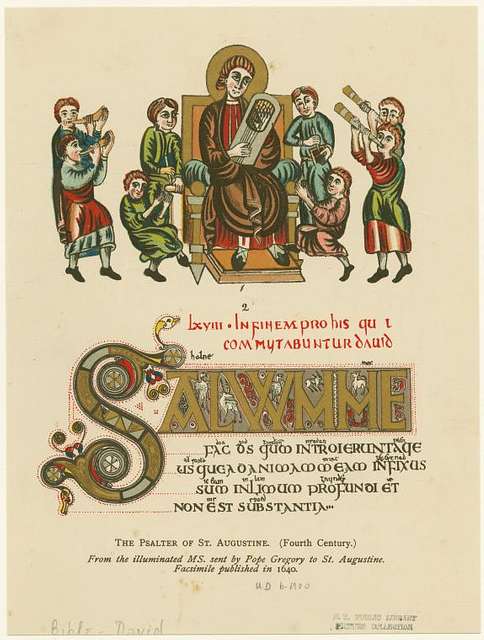 2
LXVIII · IN FINEM PRO HIS QUI
COMMUTABUNTUR DAUID
halne
SALUUM ME
FAC DS QUM INTROIERUNT AQE
US QUE AD ANIMAM MEAM INFIXUS
SUM IN LIMUM PROFUNDI ET
NON EST SUBSTANTIA...
THE PSALTER OF ST. AUGUSTINE. (Fourth Century.)
From the illuminated MS. sent by Pope Gregory to St. Augustine.
Facsimile published in 1640.
Bible - David
N. Y. PUBLIC LIBRARY
PICTURE COLLECTION